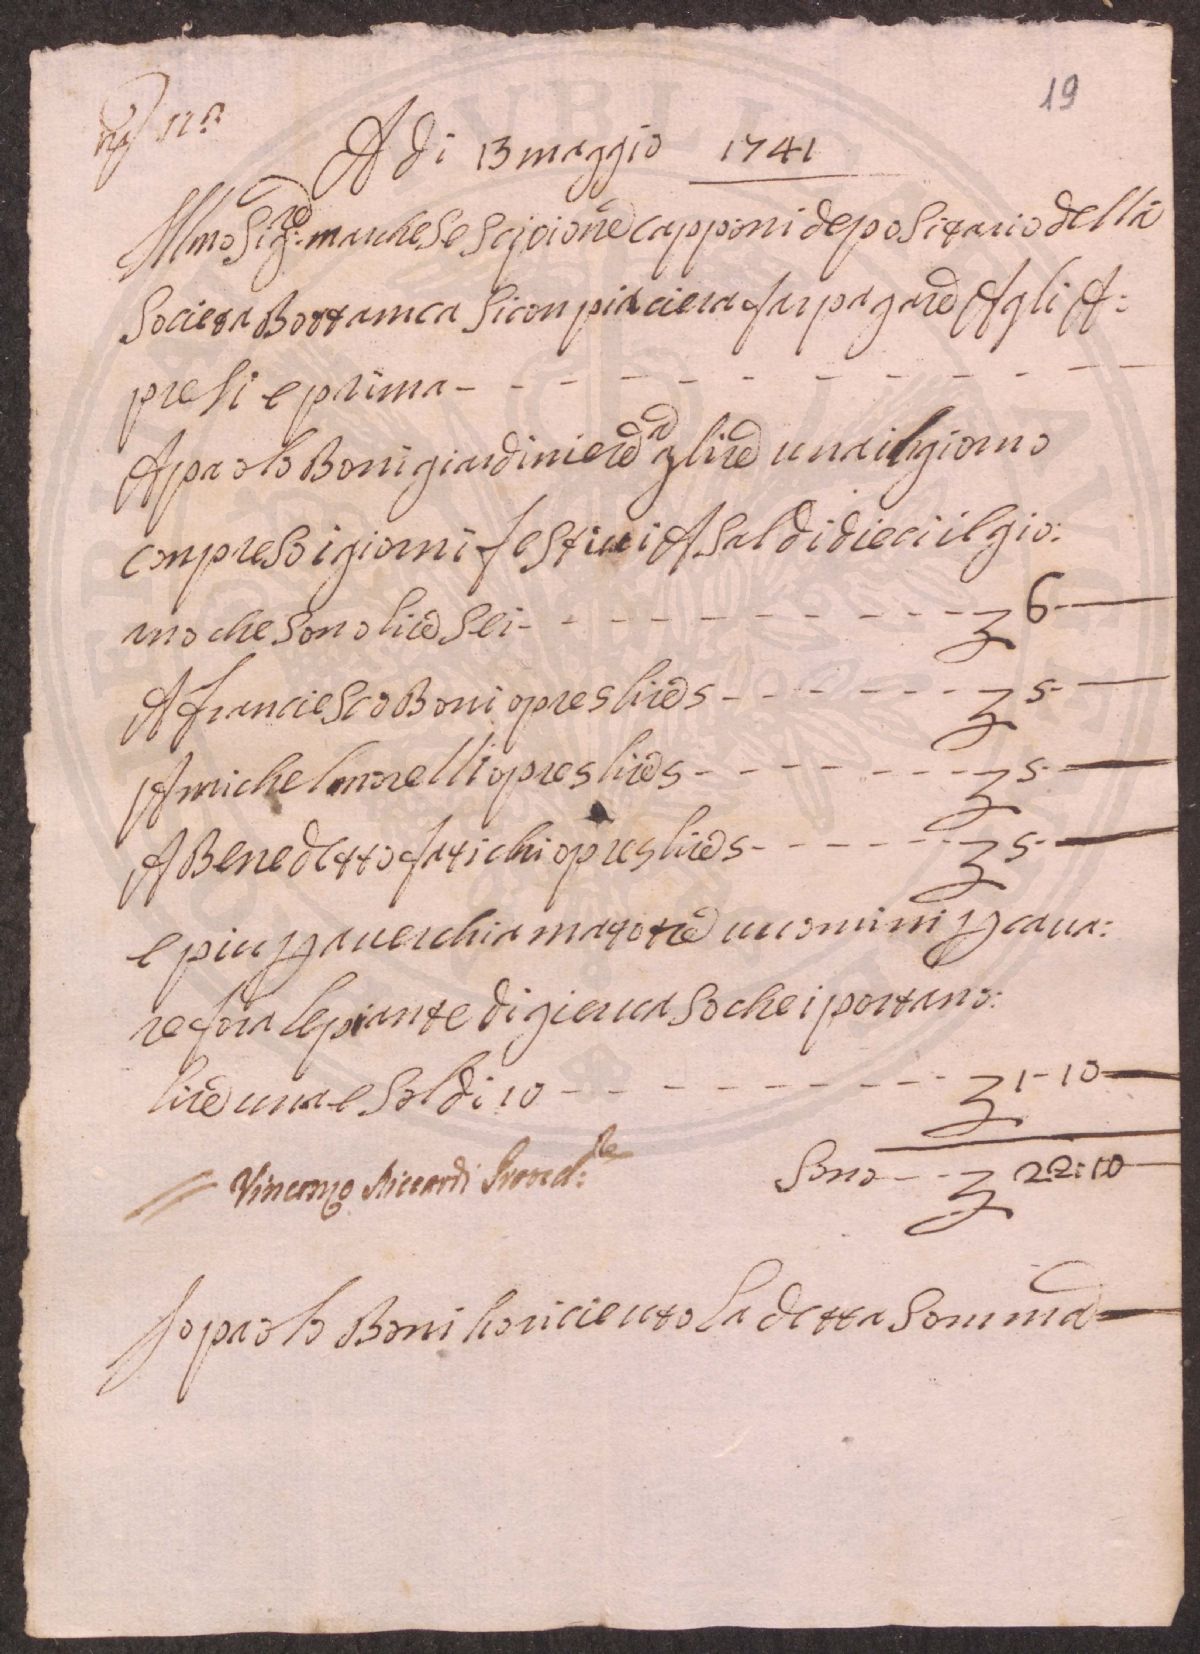 19
A di 13 maggio 1741
Illmo Sig:re marchese Scipione Capponi depositario della
Società Bottanica si conpiacierà far pagare Agli A:
presi e prima - - - - - - - - - - - -
A paolo Boni giardiniere a lire una il giorno
conpreso i giorni festiui A saldi dieci il gio:
rno che sono lire sei - - - - - - - - - 6 -
A franciesco Boni opre 5 lire 5 - - - - - - 5 -
A michel morelli opre 5 lire 5 - - - - - - - 5 -
A Benedetto fatichi opre 5 lire 5 - - - - - - 5 -
e piu p auer chiamato tre uuomini p caua:
re fora le piante di gieruaso che iportano:
lire una e soldi 10 - - - - - - - - 1 - 10
Vincenzo Riccardi Proved:re
Sono - - 22:10
Io paolo Boni ho ricieuto la detta somma